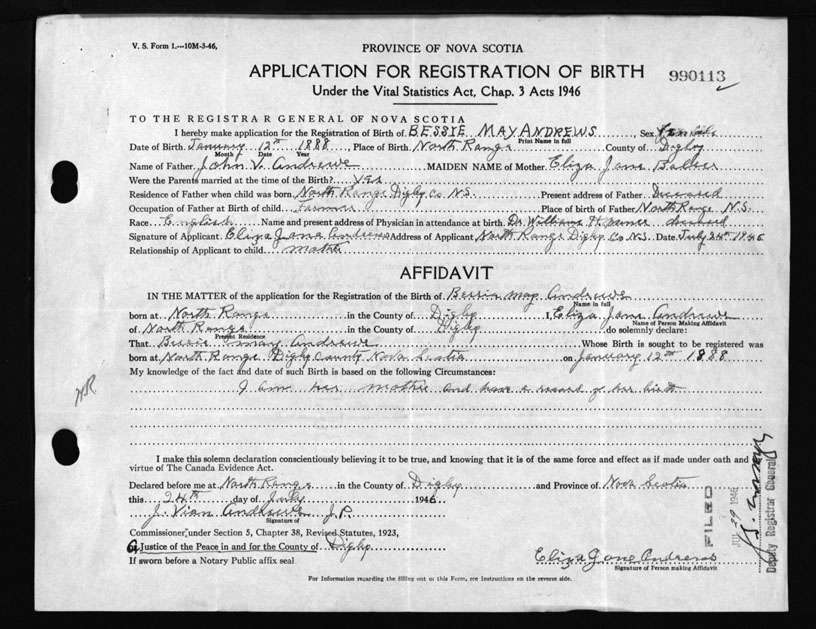 V. S. Form 1.—10M-3-46,
PROVINCE OF NOVA SCOTIA
APPLICATION FOR REGISTRATION OF BIRTH
990113
Under the Vital Statistics Act, Chap. 3 Acts 1946
TO THE REGISTRAR GENERAL OF NOVA SCOTIA
I hereby make application for the Registration of Birth of BESSIE MAY ANDREWS, Sex Female
Print Name in full
Date of Birth January 12th 1888, Place of Birth North Range County of Digby
Month Date Year
Name of Father John V. Andrews MAIDEN NAME of Mother Eliza Jane
Were the Parents married at the time of the Birth? Yes
Residence of Father when child was born North Range Digby Co N.S. Present address of Father Deceased
Occupation of Father at Birth of child Farmer Place of birth of Father North Range N.S.
Race English Name and present address of Physician in attendance at birth Dr. Williams deceased
Signature of Applicant Eliza Jane Andrews Address of Applicant North Range Digby Co N.S. Date July 24th 1946
Relationship of Applicant to child mother
AFFIDAVIT
IN THE MATTER of the application for the Registration of the Birth of Bessie May Andrews
Name in full
born at North Range in the County of Digby I, Eliza Jane Andrews
Name of Person Making Affidavit
of North Range in the County of Digby do solemnly declare:
Present Residence
That Bessie May Andrews Whose Birth is sought to be registered was
born at North Range Digby County Nova Scotia on January 12th 1888
My knowledge of the fact and date of such Birth is based on the following Circumstances:
I am her mother and have a record of her birth
WR
I make this solemn declaration conscientiously believing it to be true, and knowing that it is of the same force and effect as if made under oath and
virtue of The Canada Evidence Act.
Declared before me at North Range in the County of Digby and Province of Nova Scotia
this 24th day of July 1946.
J. Vian Andrews J.P.
Signature of
Commissioner under Section 5, Chapter 38, Revised Statutes, 1923,
a Justice of the Peace in and for the County of Digby
If sworn before a Notary Public affix seal
Eliza Jane Andrews
Signature of Person making Affidavit
For Information regarding the filling out of this Form, see Instructions on the reverse side.
FILED
JUL 29 1946
Deputy Registrar General